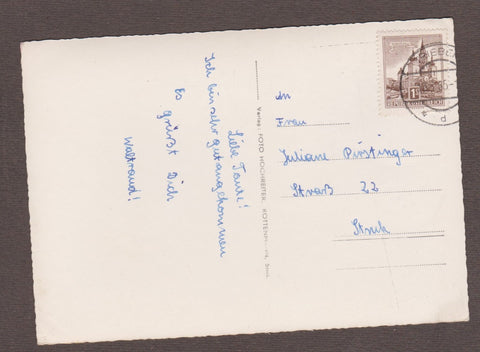 Liebe Tante!
Ich bin sehr gut angekommen
Es
grüßt Dich
Waltraud!
Verlag: FOTO HOCHREITER,
An
Frau
Juliane Pürstinger
Straß 22
REPUBLIK ÖSTERREICH